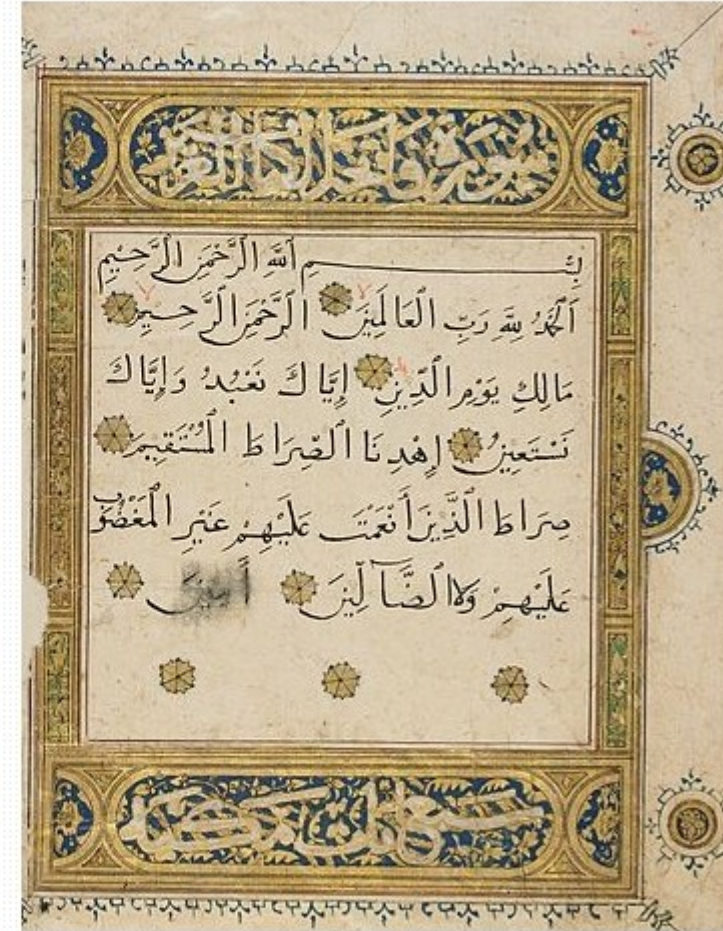 سورة فاتحة الكتاب
بِسْمِ ٱللَّهِ ٱلرَّحْمَٰنِ ٱلرَّحِيمِ
ٱلْحَمْدُ لِلَّهِ رَبِّ ٱلْعَالَمِينَ ٱلرَّحْمَٰنِ ٱلرَّحِيمِ
مَالِكِ يَوْمِ ٱلدِّينِ إِيَّاكَ نَعْبُدُ وَإِيَّاكَ
نَسْتَعِينُ إِهْدِنَا ٱلصِّرَاطَ ٱلْمُسْتَقِيمَ
صِرَاطَ ٱلَّذِينَ أَنْعَمْتَ عَلَيْهِمْ غَيْرِ ٱلْمَغْضُوبِ
عَلَيْهِمْ وَلَا ٱلضَّآلِّينَ أَمِينَ